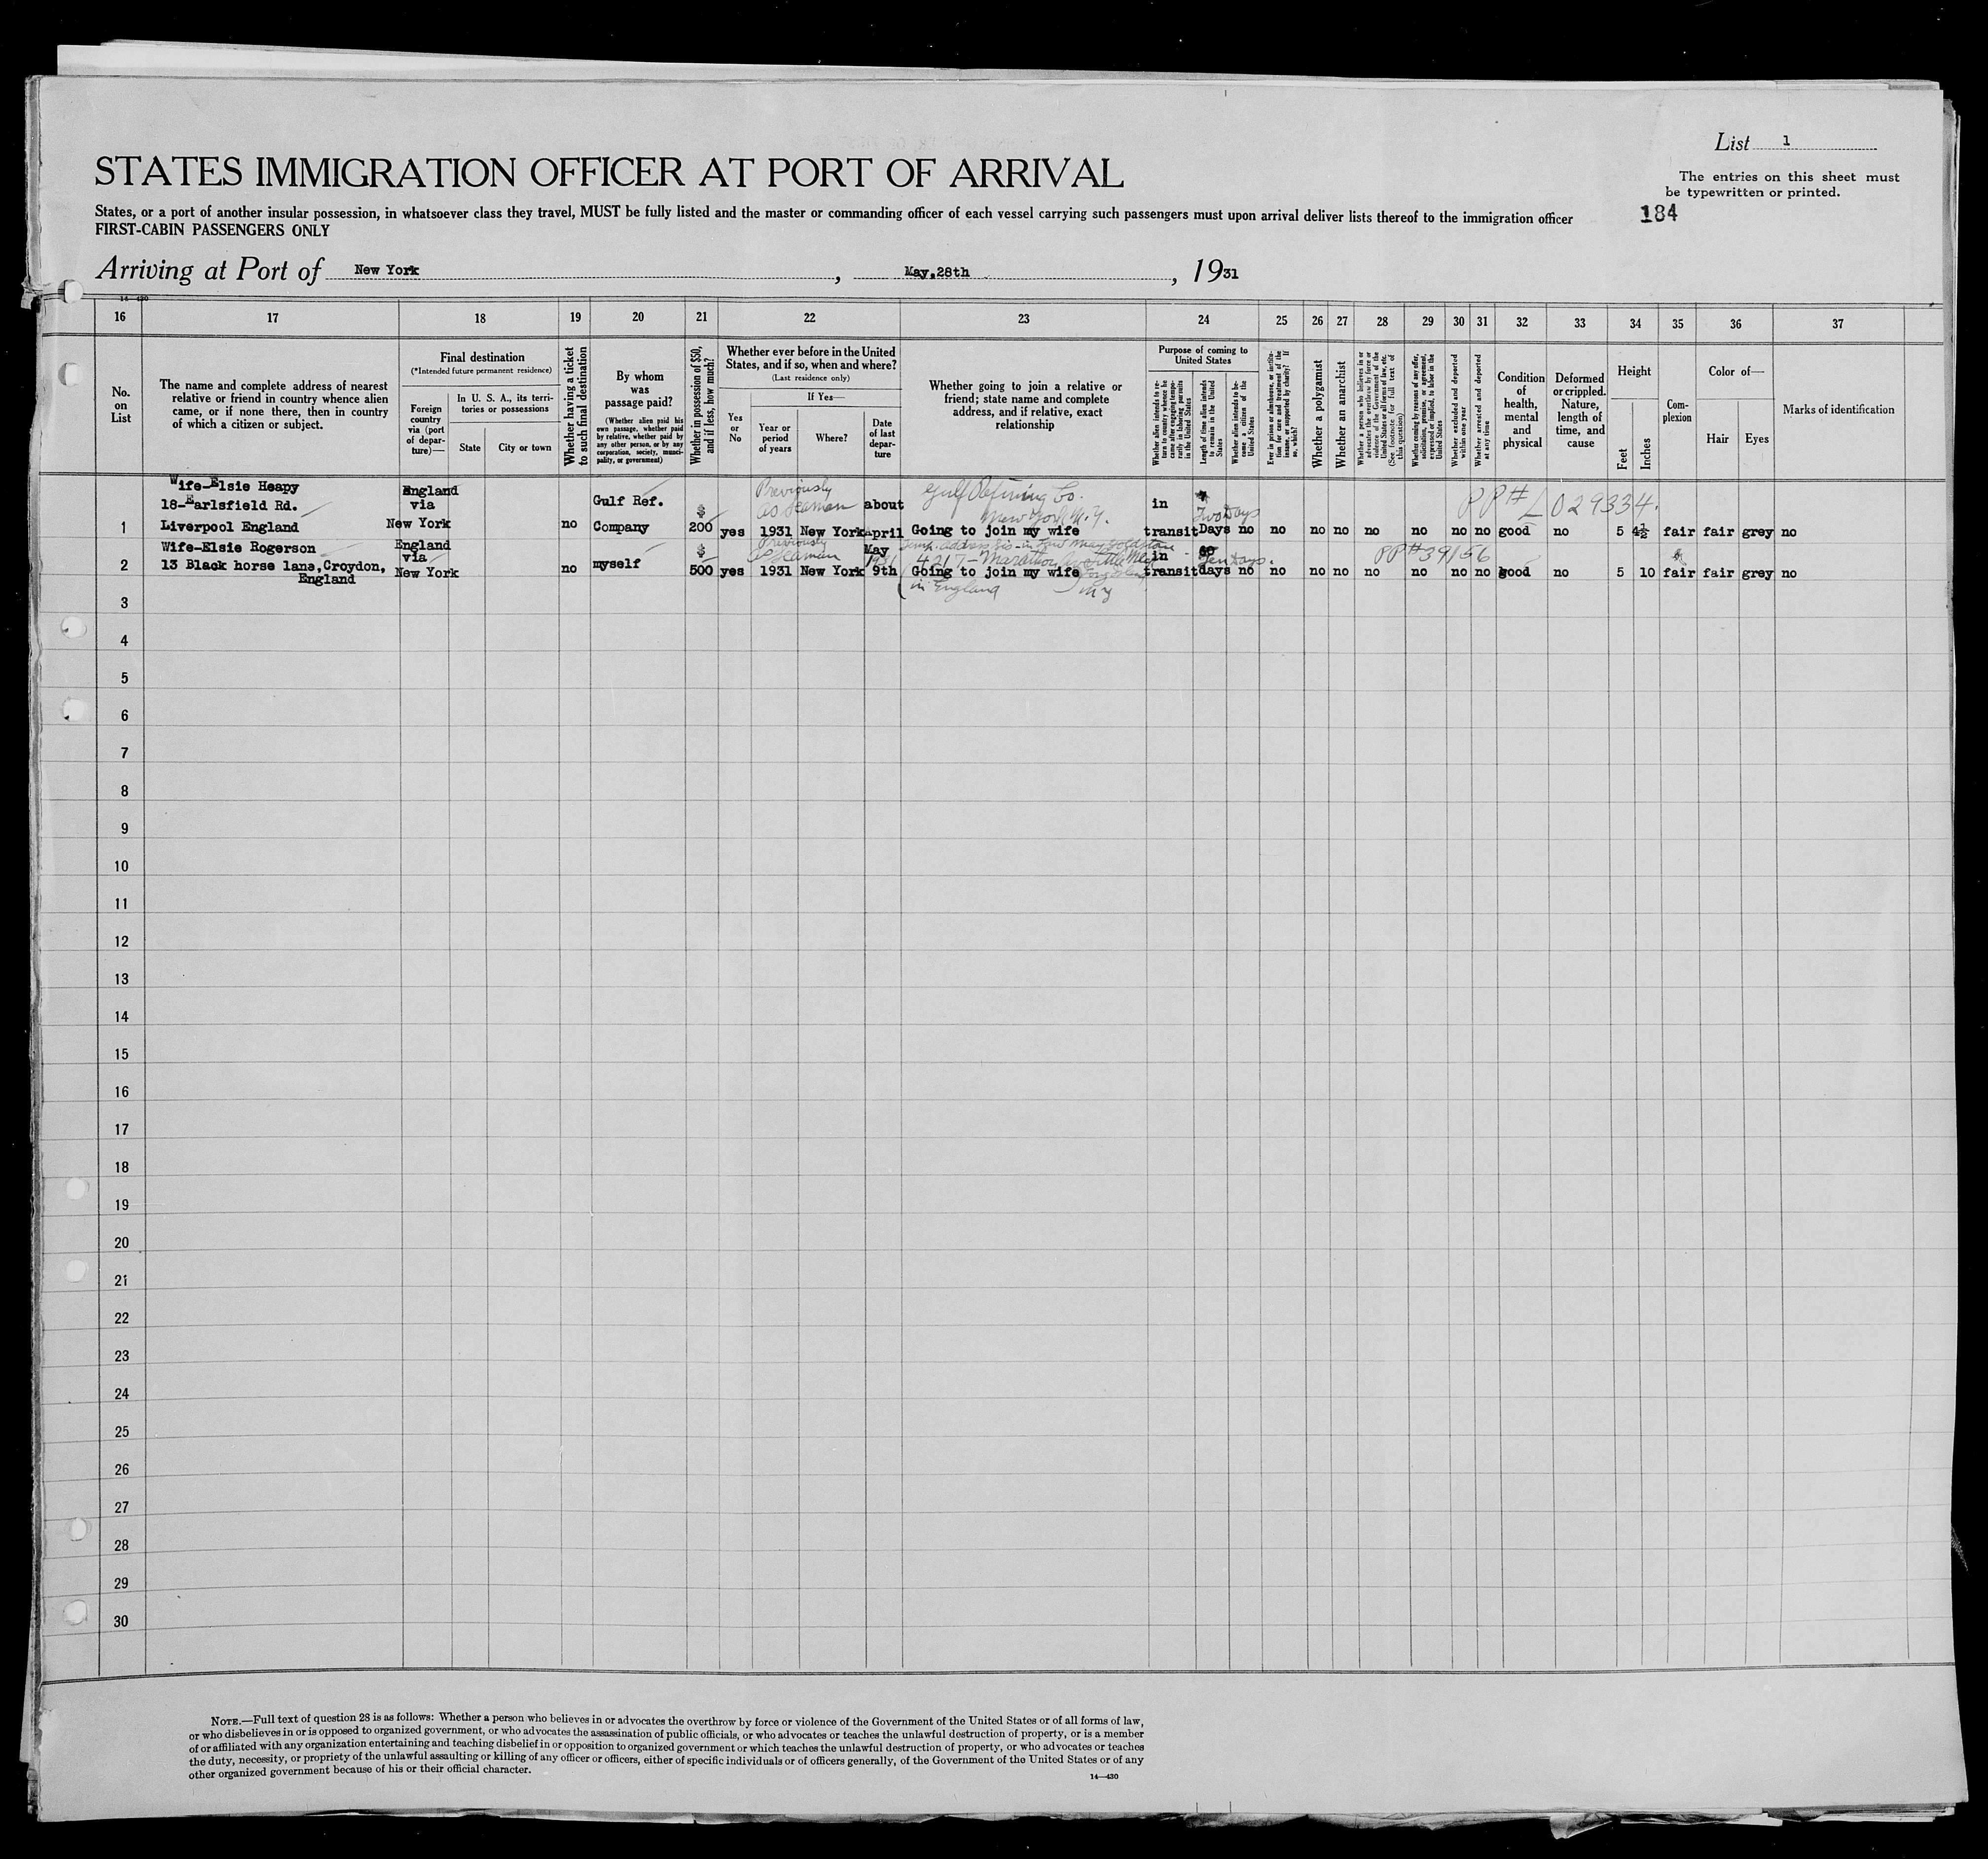 List 1
STATES IMMIGRATION OFFICER AT PORT OF ARRIVAL
The entries on this sheet must
be typewritten or printed.
184
States, or a port of another insular possession, in whatsoever class they travel, MUST be fully listed and the master or commanding officer of each vessel carrying such passengers must upon arrival deliver lists thereof to the immigration officer
FIRST-CABIN PASSENGERS ONLY
Arriving at Port of New York, May.28th, 1931
14—430
16 17 18 19 20 21 22 23 24 25 26 27 28 29 30 31 32 33 34 35 36 37
No.
on
List
The name and complete address of nearest
relative or friend in country whence alien
came, or if none there, then in country
of which a citizen or subject.
Final destination
(*Intended future permanent residence)
Foreign
country
via (port
of depar-
ture)—
In U. S. A., its terri-
tories or possessions
State
City or town
Whether having a ticket
to such final destination
By whom
was
passage paid?
(Whether alien paid his
own passage, whether paid
by relative, whether paid by
any other person, or by any
corporation, society, munici-
pality, or government)
Whether in possession of $50,
and if less, how much?
Whether ever before in the United
States, and if so, when and where?
(Last residence only)
Yes
or
No
If Yes—
Year or
period
of years
Where?
Date
of last
depar-
ture
Whether going to join a relative or
friend; state name and complete
address, and if relative, exact
relationship
Purpose of coming to
United States
Whether alien intends to re-
turn to country whence he
came after engaging tempo-
rarily in laboring pursuits
in the United States
Length of time alien intends
to remain in the United
States
Whether alien intends to be-
come a citizen of the
United States
Ever in prison or almshouse, or institu-
tion for care and treatment of the
insane, or supported by charity? If
so, which?
Whether a polygamist
Whether an anarchist
Whether a person who believes in or
advocates the overthrow by force or
violence of the Government of the
United States or all forms of law, etc.
(See footnote for full text of
this question)
Whether coming by reasons of any offer,
solicitation, promise, or agreement,
expressed or implied, to labor in the
United States
Whether excluded and deported
within one year
Whether arrested and deported
at any time
Condition
of
health,
mental
and
physical
Deformed
or crippled.
Nature,
length of
time, and
cause
Height
Feet
Inches
Com-
plexion
Color of—
Hair
Eyes
Marks of identification
Wife-Elsie Heapy
18-Earlsfield Rd.
Liverpool England
England
via
New York
no
Gulf Ref.
Company
$
200
yes
Previously
as seaman
1931 New York
about
April
Gulf Refining Co.
New York N.Y.
Going to join my wife
in
transit
Two Days
Days no no no no no no no no good no 5 4½ fair fair grey no
PP# L029334.
1
Wife-Elsie Rogerson
13 Black horse lane, Croydon,
England
England
via
New York
no
myself
$
500
yes
Previously
as Seaman
1931 New York
May
1931
9th
4217-Marathon
Going to join my wife
in England
N.Y
in
transit
Ten Days.
days no no no no no no no no good no 5 10 fair fair grey no
PP#39156
2
3
4
5
6
7
8
9
10
11
12
13
14
15
16
17
18
19
20
21
22
23
24
25
26
27
28
29
30
NOTE.—Full text of question 28 is as follows: Whether a person who believes in or advocates the overthrow by force or violence of the Government of the United States or of all forms of law,
or who disbelieves in or is opposed to organized government, or who advocates the assassination of public officials, or who advocates or teaches the unlawful destruction of property, or is a member
of or affiliated with any organization entertaining and teaching disbelief in or opposition to organized government or which teaches the unlawful destruction of property, or who advocates or teaches
the duty, necessity, or propriety of the unlawful assaulting or killing of any officer or officers, either of specific individuals or of officers generally, of the Government of the United States or of any
other organized government because of his or their official character.
14—430